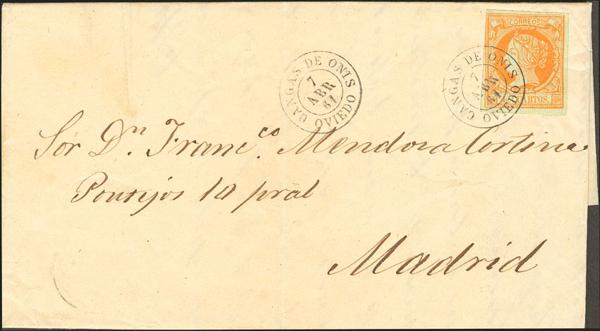 CORREOS
CANGAS DE ONIS
7
ABR
61
OVIEDO
CANGAS DE ONIS
7
ABR
61
OVIEDO
Sór Dn. Franco. Mendoza Cortina
Pontejos 10 pral
Madrid